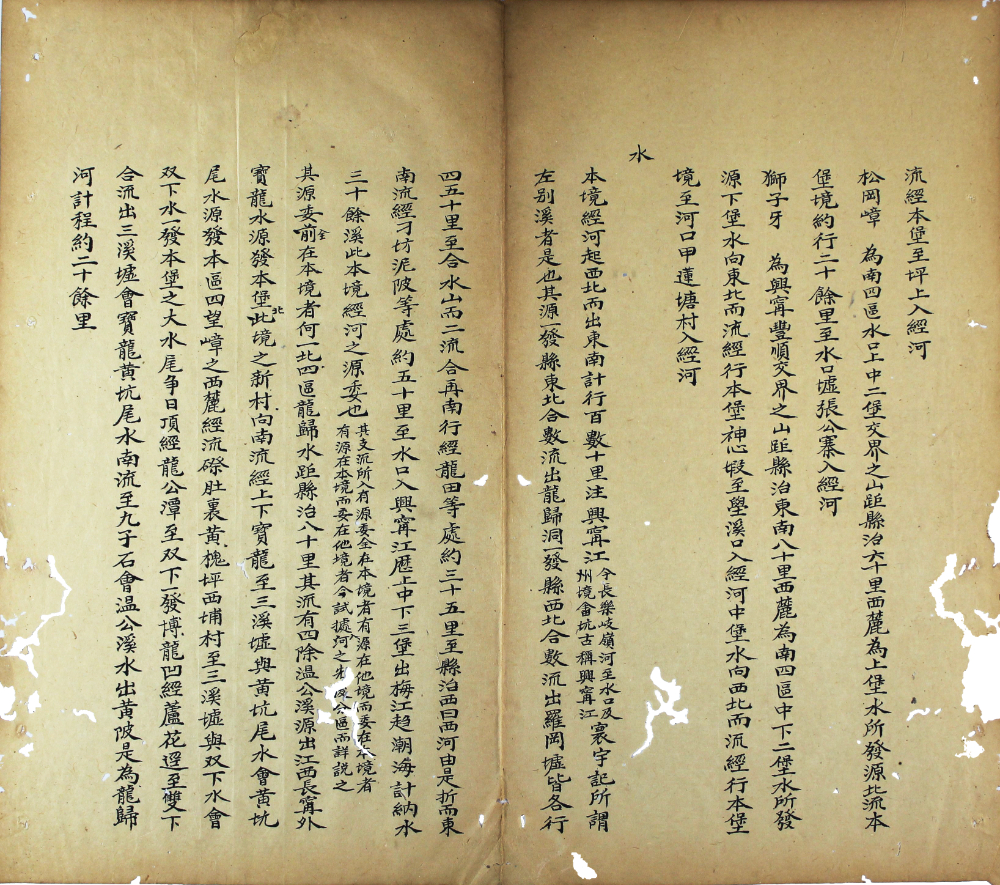 流經本堡至坪上入經河
松岡嶂　為南四區水口上中二堡交界之山距縣治六十里西麓為上堡水所發源北流本
堡境約行二十餘里至水口墟張公寨入經河
獅子牙　為興甯豐順交界之山距縣治東南八十里西麓為南四區中下二堡水所發
源下堡水向東北而流經行本堡神心嘏至壆溪口入經河中堡水向西北而流經行本堡
境至河口甲蓮塘村入經河
水
本境經河起西北而出東南計行百數十里注興甯江今長樂岐嶺河至水口及州境畬坑古稱興甯江寰宇記所謂
左别溪者是也其源一發縣東北合數流出龍歸洞一發縣西北合數流出羅岡墟皆各行
四五十里至合水山而二流合再南行經龍田等處約三十五里至縣治西曰西河由是折而東
南流經刁坊泥陂等處約五十里至水口入興甯江歷上中下三堡出梅江趍潮海計納水
三十餘溪此本境經河之源委也其支派所入有源委全在本境者有源在他境而委在本境者有源在本境而委在他境者今試據河之先入分區而詳説之
其源委前全在本境者何一北四區龍歸水距縣治八十里其流有四除温公溪源出江西長甯外
寶龍水源發本堡此北境之新村向南流經上下寶龍至三溪墟與黄坑尾水會黄坑
尾水源發本區四望嶂之西麓經流磜肚裏黄槐坪西埔村至三溪墟與双下水會
双下水一發本堡之大水尾争日頂經龍公潭至双下一發博龍凹經蘆花逕至雙下
合流出三溪墟會寶龍黄坑尾水南流至九子石會温公溪水出黄陂是為龍歸
河計程約二十餘里